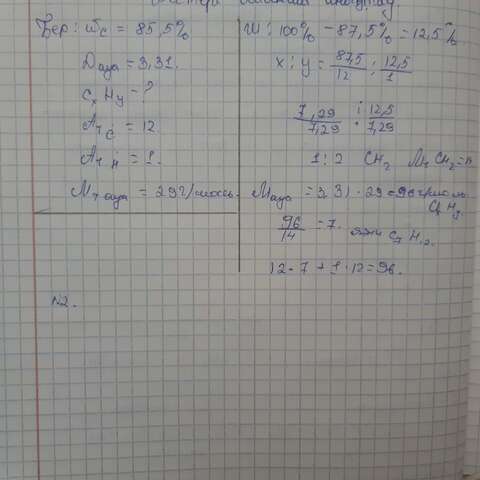 Бер: ωc = 85,5%
Dауа = 3,31.
CxHy - ?
Ar C = 12
Ar H = 1.
Mr ауа = 29 г/моль.
W: 100% - 87,5% = 12,5%
x : y = 87,5/12 : 12,5/1
7,29/7,29 : 12,5/7,29
1 : 2 CH2 CH2 =
Mауа = 3,31 · 29 = 96 г/моль
96/14 = 7. C7 H12.
12 · 7 + 1 · 12 = 96.
N2.